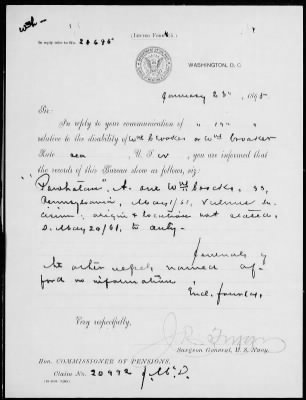 In reply refer to No. 20695
WASHINGTON, D. C.
January 23d, 1895
Sir:
In reply to your communication of " 19" "
relative to the disability of Wm Crooks or Wm Crooker
Rate sea U. S. N, you are informed that
the records of this Bureau show as follows, viz:
"Powhatan", A. one Wm Crooks, 33,
Pennsylvania, May 1/61,
origin & location not stated,
D. May 20/61, to duty.
Journals of
the other vessels named af-
ford no information
Encl. found
Very respectfully,
Surgeon General, U. S. Navy.
HON. COMMISSIONER OF PENSIONS.
Claim No. 20992